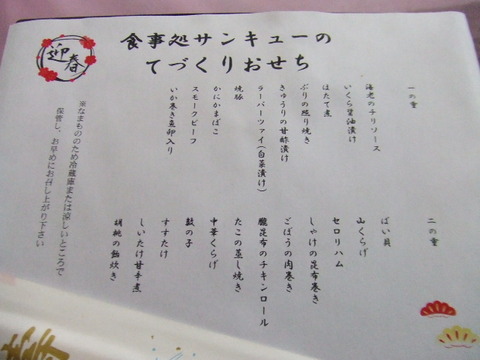 迎春
食事処サンキューの
てづくりおせち
一の重
海老のチリソース
いくら醤油漬け
ほたて煮
ぶりの照り焼き
きゅうりの甘酢漬け
ラーパーツァイ(白菜漬け)
焼豚
かにかまぼこ
スモークビーフ
いか巻き魚卵入り
二の重
ばい貝
山くらげ
セロリハム
しゃけの昆布巻き
ごぼうの肉巻き
朧昆布のチキンロール
たこの蒸し焼き
中華くらげ
数の子
すすたけ
しいたけ甘辛煮
胡桃の飴炊き
※なまもののため冷蔵庫または涼しいところで
保管し、お早めにお召し上がり下さい